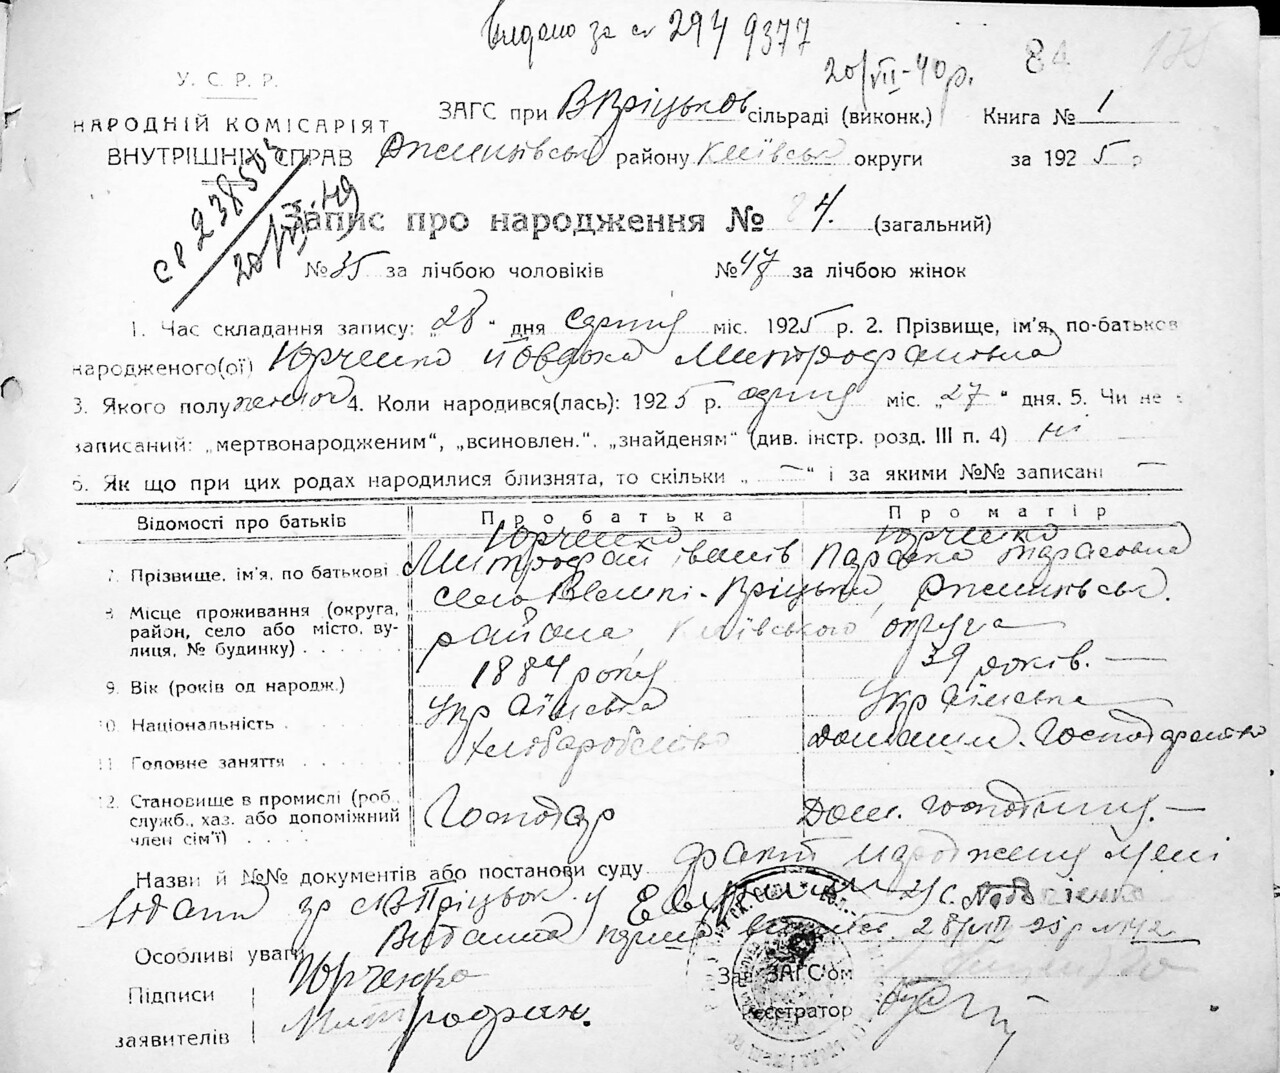 Видано за св 294 9377
20/VII-40 р.
84
175
У. С. Р. Р.
НАРОДНІЙ КОМІСАРІЯТ
ВНУТРІШНІХ СПРАВ
ЗАГС при В Пріцьков сільраді (виконк.) Книга № 1
району Київськ округи за 1925 р
Запис про народження № 84. (загальний)
№ 35 за лічбою чоловіків № 47 за лічбою жінок
1. Час складання запису: „28“ дня Серпня міс. 1925 р. 2. Прізвище, ім'я, по-батьков
народженого(ої) Юрченко Йовдоха Митрофановна
3. Якого полу жіночої 4. Коли народився(лась): 1925 р. серпня міс. „27“ дня. 5. Чи не є
записаний: „мертвонародженим“, „всиновлен.“, „знайденям“ (див. інстр. розд. III п. 4) ні
6. Як що при цих родах народилися близнята, то скільки „—“ і за якими №№ записані —
Відомості про батьків Про батька Про матір
Юрченко Юрченко
7. Прізвище, ім'я, по батькові Митрофан Іванів Параска Тарасовна
8. Місце проживання (округа, район, село або місто, вулиця, № будинку) Село Великі-Пріцьки,
района Київського округа
9. Вік (років од народж.) 1884 року 39 років. —
10. Національність Українська Українська
11. Головне заняття Хлібаробство Домашн. Господарство
12. Становище в промислі (роб., служб., хаз. або допоміжний член сім'ї) Господар Дом. господиня. —
Назви й №№ документів або постанови суду факт народження
Особливі уваги Видання 28/VIII 25 р №142
Підписи
заявителів
Юрченко
Митрофан.
Зав. ЗАГС'ом
Реєстратор